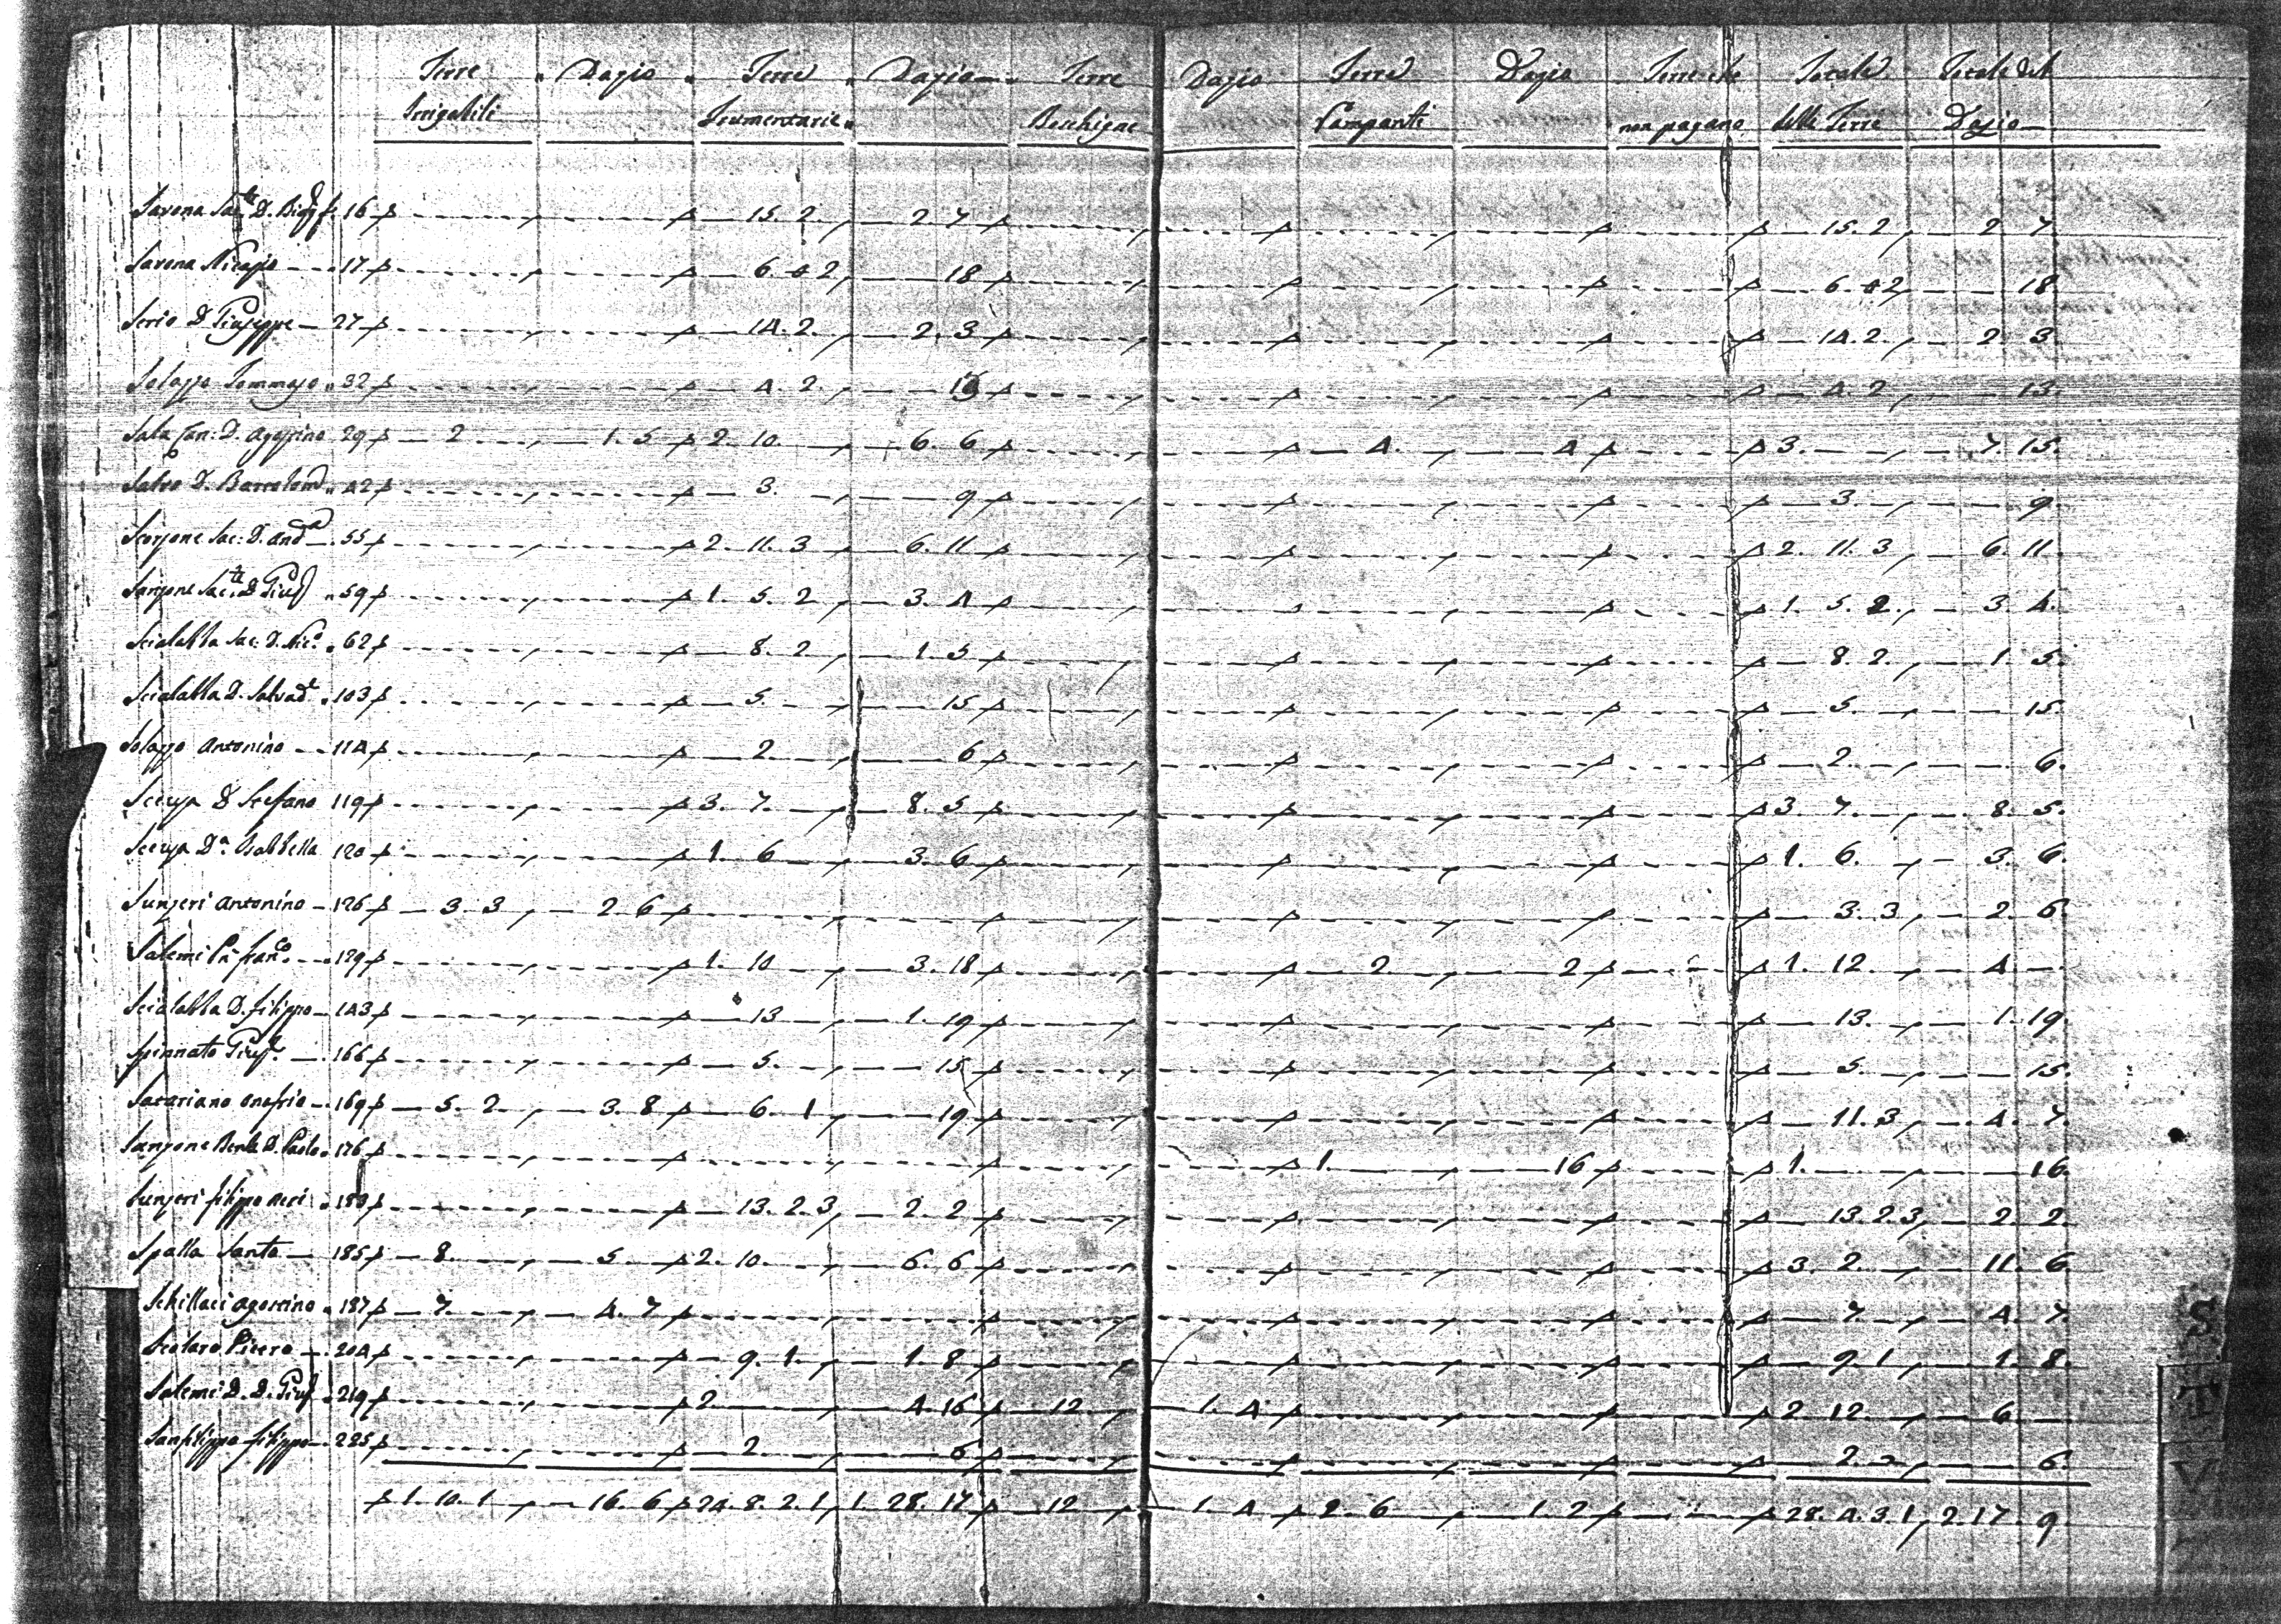 Terre " Dazio " Terre " Dazio — " Terre Dazio Terre Dazio Terre che Totale Totale del
Irrigabili Frumentarie " Boschigne Campanti non pagano delle Terre Dazio
Savona Sac.te D. 16 — 15. 2. — 2. 7 — 15. 2 — 2. 7.
Savona Nicasio — 17 — 6. 2 — 18 — 6. 2 — 18.
Serio D. Giuseppe — 27 — 14. 2. — 2. 3 — 14. 2. — 2. 3.
Solazzo Tommaso " 32 — 4. 2. — 13 — 4. 2 — 13.
Sala Can. D. Agostino 29 — 2 — 1. 5 2. 10 — 6. 6 — 4. — 4 3. — 7. 15.
Salvo D. Bartolom. " 42 — 3. — 9 — 3. — 9
Sac. D. And.a — 55 2. 11. 3 — 6. 11 2. 11. 3 — 6. 11.
Sanzone Sac.te D. Gius. " 59 1. 5. 2 — 3. 4 1. 5. 2. — 3. 4.
Scialabba Sac. D. Nic.o " 62 — 8. 2 — 1. 5 — 8. 2. — 1. 5.
Scialabba D. Salvad.e " 103 — 5. — 15 — 5. — 15.
Solazzo Antonino — 114 — 2 — 6 — 2. — 6.
D. Stefano 119 3. 7. — 8. 5 3. 7. — 8. 5.
D.a Isabbella 120 1. 6 — 3. 6 1. 6. — 3. 6.
Sunzeri Antonino — 126 — 3. 3 — 2. 6 — 3. 3 — 2. 6.
Salemi Fran.co — 129 1. 10 — 3. 18 — 2 — 2 1. 12. — 4. —
Scialabba D. Filippo — 143 — 13 — 1. 19 — 13. — 1. 19.
Spinnato Gius.e — 166 — 5. — 15 — 5. — 15.
Satariano Onofrio — 169 — 5. 2. — 3. 8 — 6. 1 — 19 — 11. 3 — 4. 7.
Sanzone D. Paolo " 176 1. — 16 1. — 16.
Sunzeri Filippo " 180 — 13. 2. 3 — 2. 2 — 13. 2. 3 — 2. 2.
Spalla Santo — 185 — 8. — 5. 2. 10. — 6. 6 3. 2. — 11. 6.
Schillaci Agostino " 187 — 7. — 4. 7 — 7. — 4. 7.
Scolaro Piero — 204 — 9. 1. — 1. 8 — 9. 1 — 1. 8.
Salemi D. D. Gius. " 219 2. — 4. 16 — 12 — 1. 4 2. 12. — 6. —
Sanfilippo Filippo — 225 — 2 — 6 — 2 — 6.
1. 10. 1 — 16. 6 24. 8. 2. 1 1. 28. 17 — 12 — 1. 4 2. 6 — 1. 2 28. 4. 3. 1 2. 17. 9.
S
T
V
Z